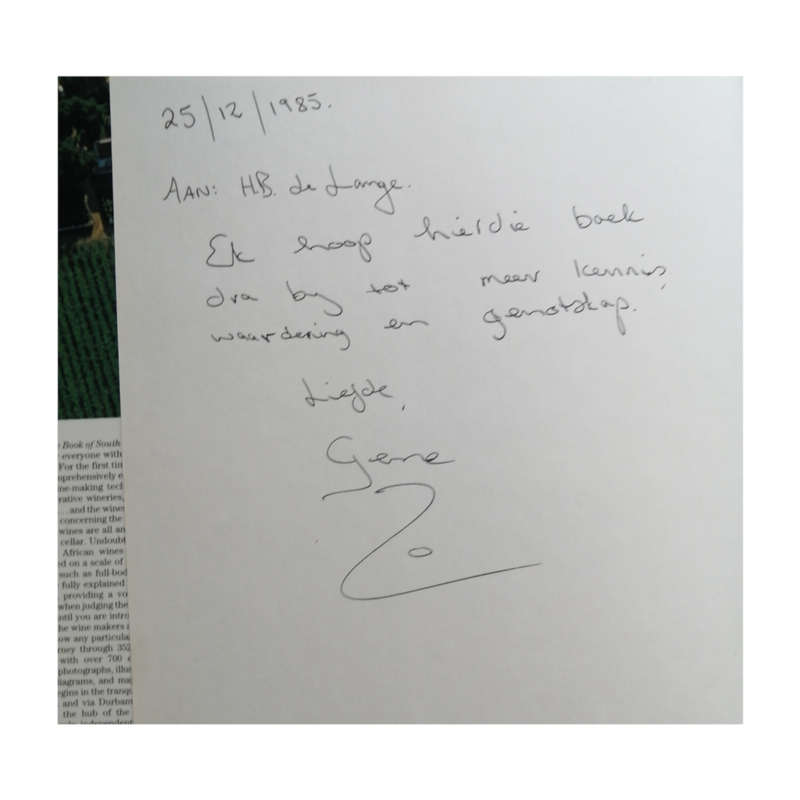 25/12/1985.
AAN: H.B. de Lange.
Ek hoop hierdie boek
dra by tot meer kennis,
waardering en genotskap.
Liefde,
Gene
Book of South
everyone with
For the first tim
mprehensively e
ne-making tech
rative wineries,
... and the wines
concerning the
wines are all an
cellar. Undoubt
African wines
ed on a scale of
such as full-bod
fully explained
providing a vo
when judging the
until you are intro
he wine makers a
ow any particula
rney through 352
with over 700 c
photographs, illus
diagrams, and ma
egins in the tranq
and via Durban
the hub of the
independent